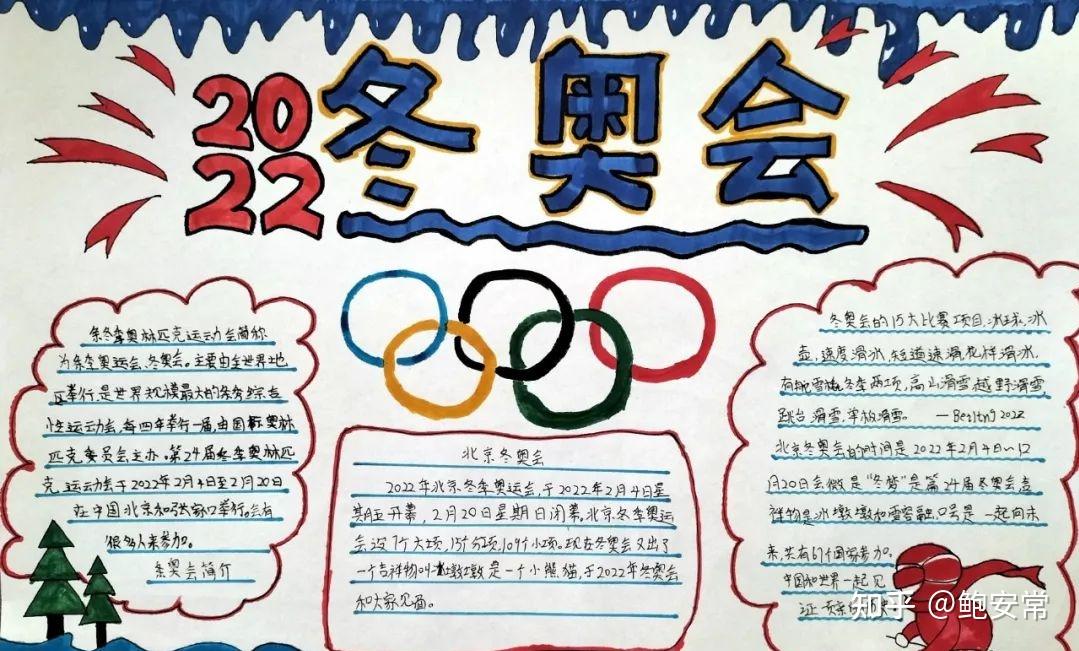 2022
冬奥会
冬季奥林匹克运动会简称
为冬季奥运会、冬奥会。主要由全世界地
区举行,是世界规模最大的冬季综合
性运动会,每四年举行一届,由国际奥林
匹克委员会主办。第24届冬季奥林匹
克运动会于2022年2月4日至2月20日
在中国北京和张家口举行。会有
很多人来参加。
冬奥会简介
北京冬奥会
2022年北京冬季奥运会,于2022年2月4日星
期五开幕,2月20日星期日闭幕。北京冬季奥运
会设7个大项,15个分项,109个小项。现在冬奥会又出了
一个吉祥物叫冰墩墩是一个小熊猫,于2022年冬奥会
和大家见面。
冬奥会的15大比赛项目,冰球,冰
壶,速度滑冰,短道速滑,花样滑冰,
有舵雪橇,冬季两项,高山滑雪,越野滑雪,
跳台滑雪,单板滑雪。 —Beijing2022
北京冬奥会的时间是2022年2月4日~12
月20日会徽是“冬梦”是篇24届冬奥会,吉
祥物是冰墩墩和雪容融,口号是一起向未
来,共有67个国家参加。
中国和世界一起见
证
知乎 @鲍安常